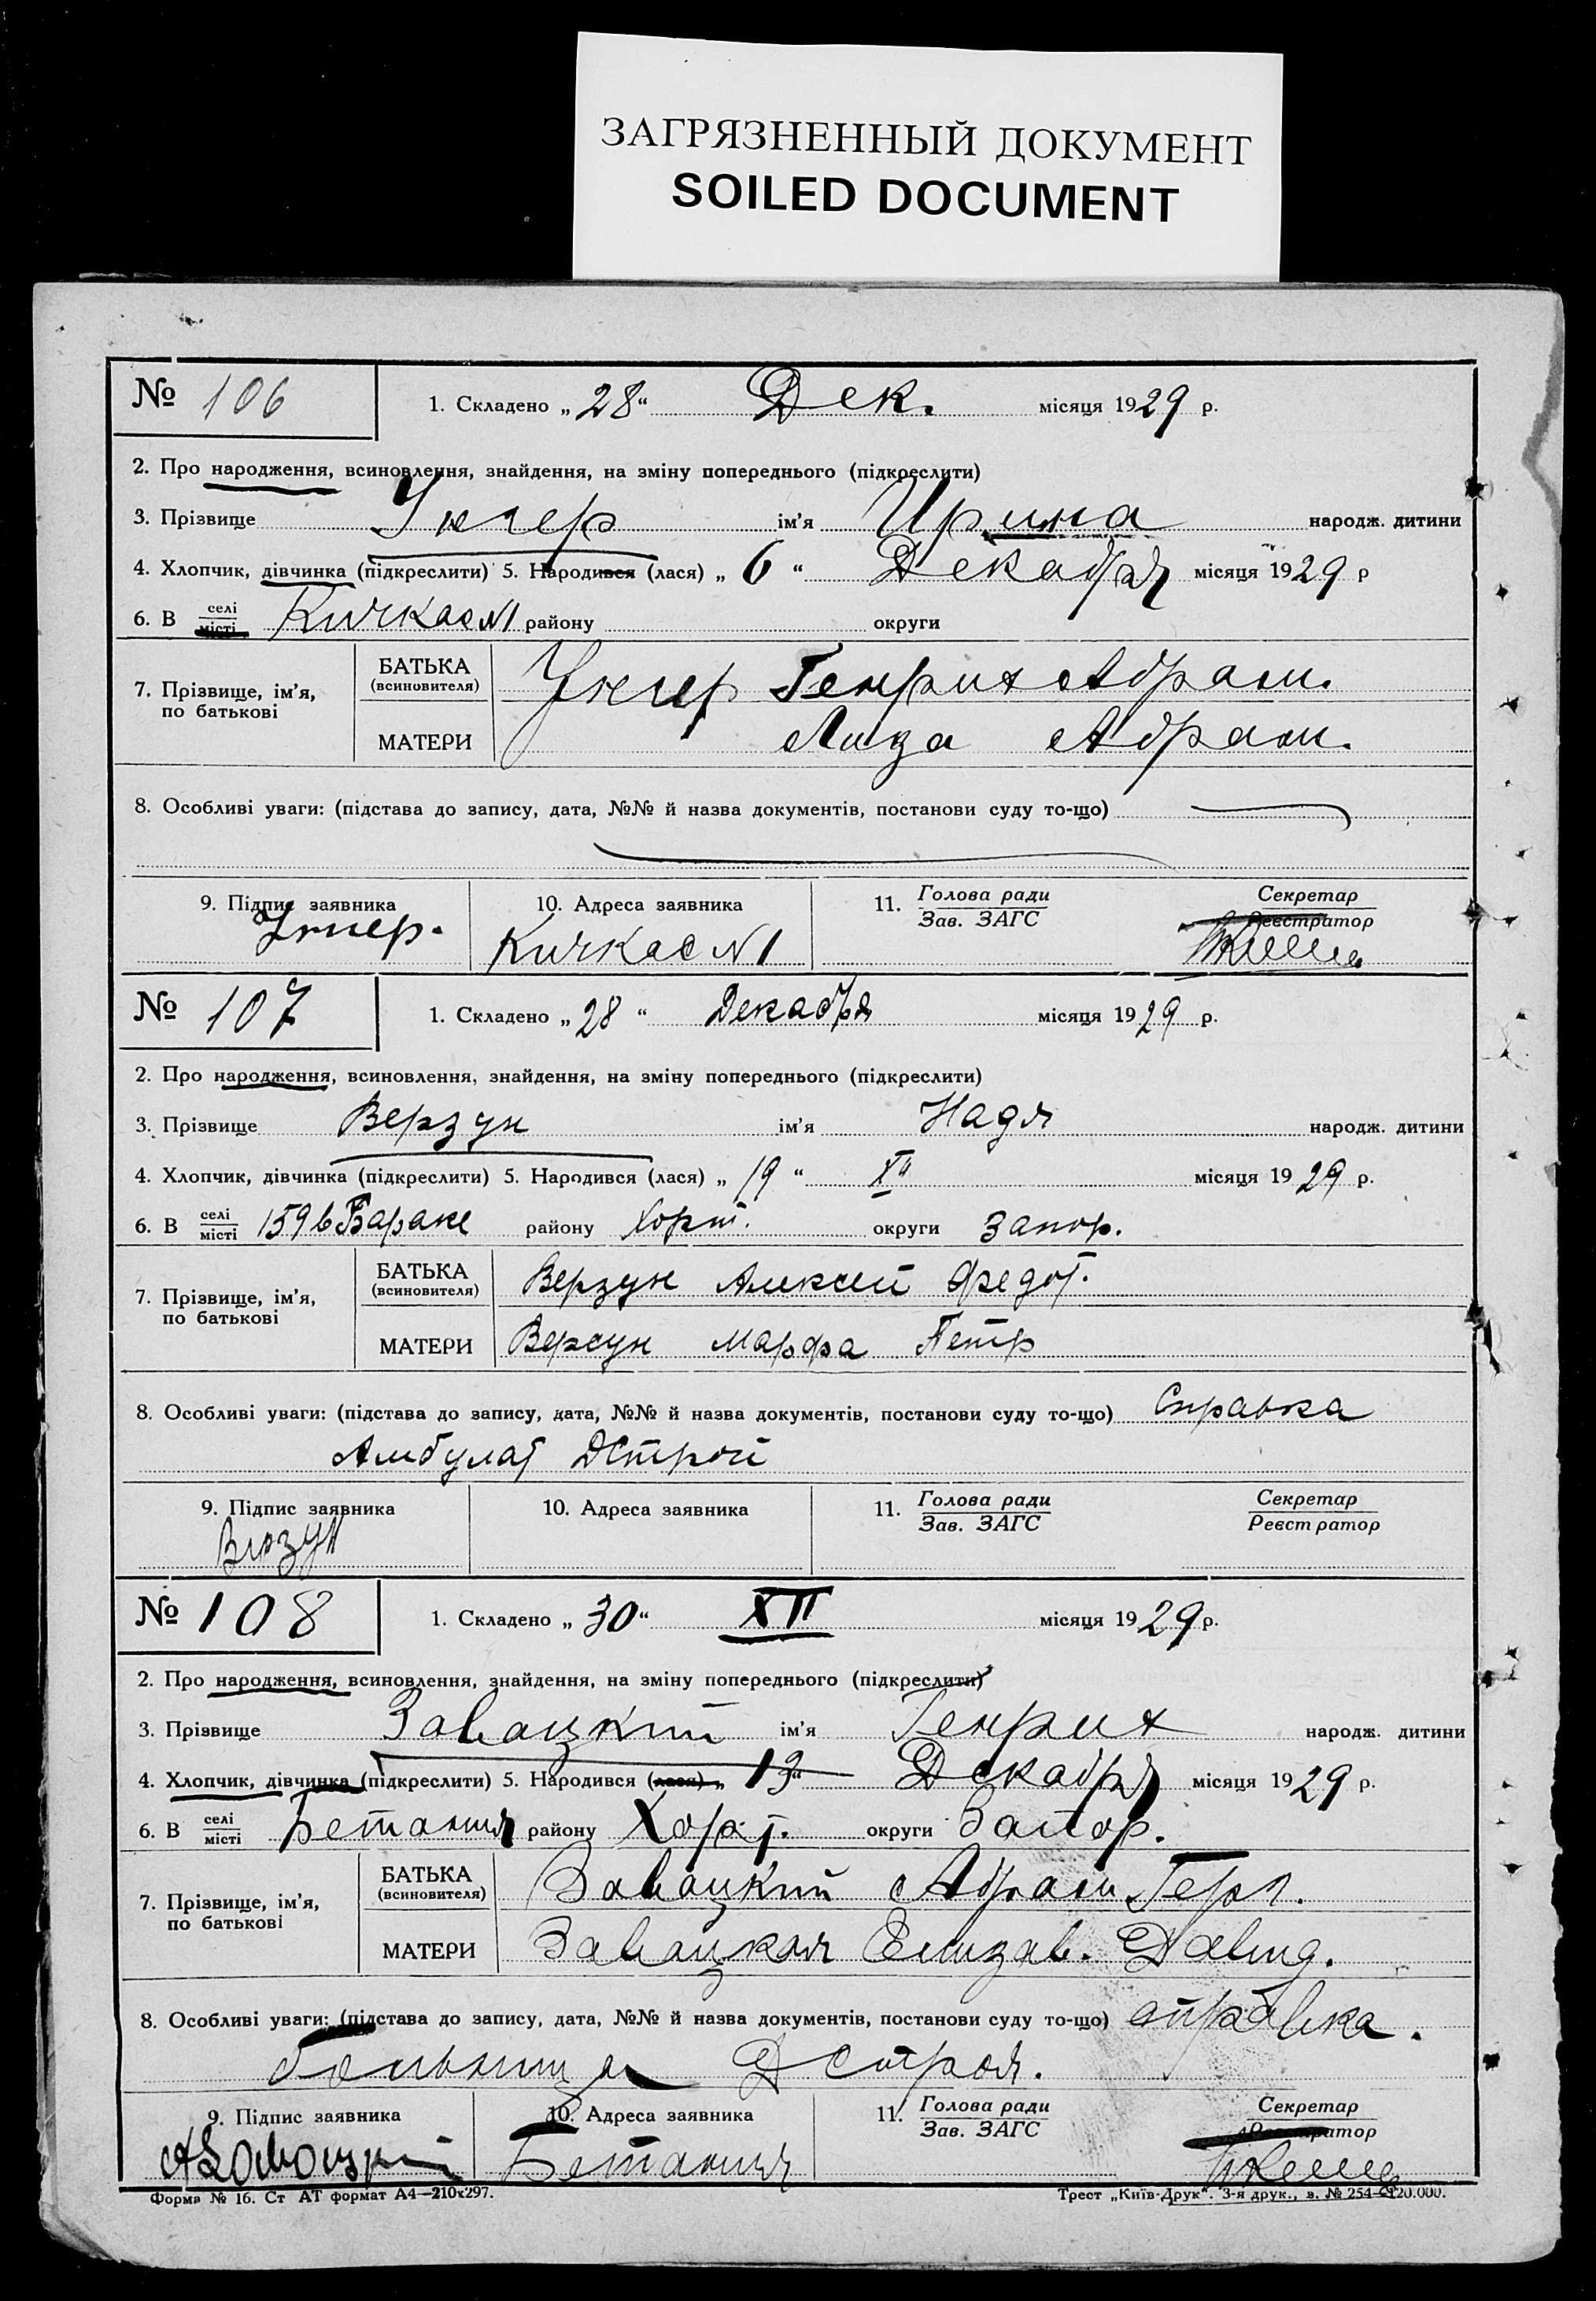 ЗАГРЯЗНЕННЫЙ ДОКУМЕНТ
SOILED DOCUMENT
№ 106 1. Складено „28“ Дек. місяця 1929 р.
2. Про народження, всиновлення, знайдення, на зміну попереднього (підкреслити)
3. Прізвище Унгер ім'я Ирина народж. дитини
4. Хлопчик, дівчинка (підкреслити) 5. Народився (лася) „6“ Декабря місяця 1929 р
6. В селі/місті Кичкас №1 району округи
7. Прізвище, ім'я, по батькові
БАТЬКА (всиновителя) Унгер Генрих Абрам.
МАТЕРИ Лиза Абрам.
8. Особливі уваги: (підстава до запису, дата, №№ й назва документів, постанови суду то-що)
9. Підпис заявника 10. Адреса заявника 11. Голова ради/Зав. ЗАГС Секретар/Реєстратор
Унгер. Кичкас №1
№ 107 1. Складено „28“ Декабря місяця 1929 р.
2. Про народження, всиновлення, знайдення, на зміну попереднього (підкреслити)
3. Прізвище Верзун ім'я Надя народж. дитини
4. Хлопчик, дівчинка (підкреслити) 5. Народився (лася) „19“ XII місяця 1929 р.
6. В селі/місті 159 б Бараке району Хорт. округи Запор.
7. Прізвище, ім'я, по батькові
БАТЬКА (всиновителя) Верзун Алексей Федот.
МАТЕРИ Версун Марфа Петр
8. Особливі уваги: (підстава до запису, дата, №№ й назва документів, постанови суду то-що) Справка
Амбулат ДСтрой
9. Підпис заявника 10. Адреса заявника 11. Голова ради/Зав. ЗАГС Секретар/Реєстратор
Верзун
№ 108 1. Складено „30“ XII місяця 1929 р.
2. Про народження, всиновлення, знайдення, на зміну попереднього (підкреслити)
3. Прізвище Завацкий ім'я Генрих народж. дитини
4. Хлопчик, дівчинка (підкреслити) 5. Народився (лася) „19“ Декабря місяця 1929 р.
6. В селі/місті Бетания району Хорт. округи Запор.
7. Прізвище, ім'я, по батькові
БАТЬКА (всиновителя) Завацкий Абрам Герг.
МАТЕРИ Завацкая Елизав. Давид.
8. Особливі уваги: (підстава до запису, дата, №№ й назва документів, постанови суду то-що) справка.
больница Дстроя.
9. Підпис заявника 10. Адреса заявника 11. Голова ради/Зав. ЗАГС Секретар/Реєстратор
А Завацкий Бетания
Форма № 16. Ст АТ формат А4—210х297. Трест „Київ-Друк“. 3-я друк., з. № 254—120.000.